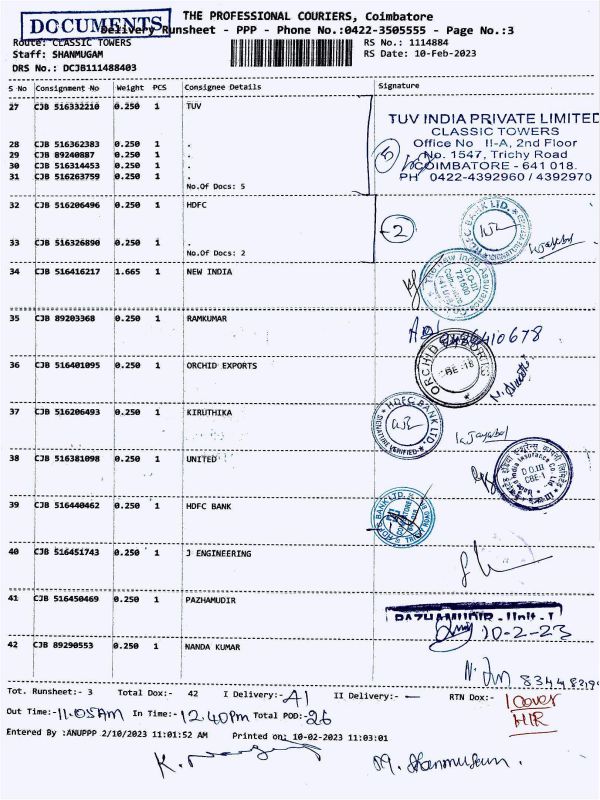 DOCUMENTS
THE PROFESSIONAL COURIERS, Coimbatore
Delivery Runsheet - PPP - Phone No.:0422-3505555 - Page No.:3
Route: CLASSIC TOWERS
RS No.: 1114884
Staff: SHANMUGAM
RS Date: 10-Feb-2023
DRS No.: DCJB111488403
S No Consignment No Weight PCS Consignee Details Signature
27 CJB 516332210 0.250 1 TUV
TUV INDIA PRIVATE LIMITED
CLASSIC TOWERS
28 CJB 516362383 0.250 1 .
Office No II-A, 2nd Floor
29 CJB 89240887 0.250 1 .
5
No. 1547, Trichy Road
30 CJB 516314453 0.250 1 .
COIMBATORE - 641 018.
31 CJB 516263759 0.250 1 .
PH 0422-4392960 / 4392970
No.Of Docs: 5
32 CJB 516206496 0.250 1 HDFC
2
33 CJB 516326890 0.250 1 .
No.Of Docs: 2
34 CJB 516416217 1.665 1 NEW INDIA
35 CJB 89203368 0.250 1 RAMKUMAR
36 CJB 516401095 0.250 1 ORCHID EXPORTS
ORCHID
CBE-18
37 CJB 516206493 0.250 1 KIRUTHIKA
HDFC BANK LTD.
SIGNATURE VERIFIED
38 CJB 516381098 0.250 1 UNITED
D.O.III
CBE-1
39 CJB 516440462 0.250 1 HDFC BANK
40 CJB 516451743 0.250 1 J ENGINEERING
41 CJB 516450469 0.250 1 PAZHAMUDIR
PAZHAMUDIR - Unit - I
10-2-23
42 CJB 89290553 0.250 1 NANDA KUMAR
Tot. Runsheet:- 3 Total Dox:- 42 I Delivery:- 41 II Delivery:- — RTN Dox:- 1 cover
Out Time:- 11.05AM In Time:- 12.40pm Total POD:- 26
Entered By :ANUPPP 2/10/2023 11:01:52 AM Printed on: 10-02-2023 11:03:01
M. Shanmugam.